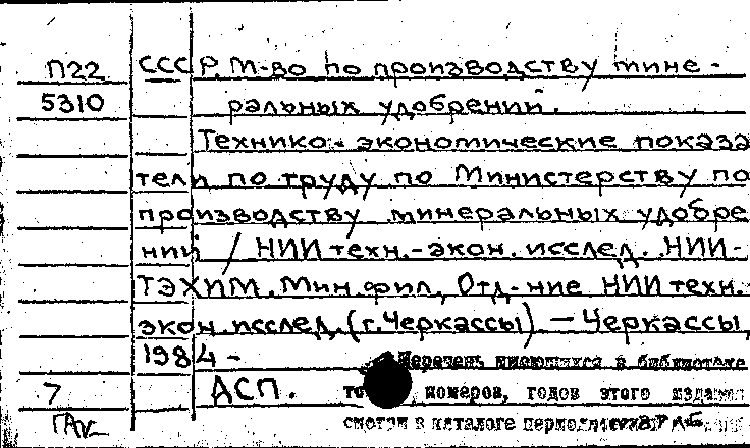 П22 СССР. М-во по производству мине-
5310 ральных удобрений.
Технико-экономические показа
тели по труду по Министерству по
производству минеральных удобре
ний / НИИ техн.-экон. исслед. НИИ-
ТЭХИМ. Мин. фил., Отд-ние НИИ техн.
экон. исслед. (г. Черкассы) — Черкассы,
1984 -
Перечень имеющихся в библиотеке
7 АСП. номеров, годов этого издания
смотри в каталоге